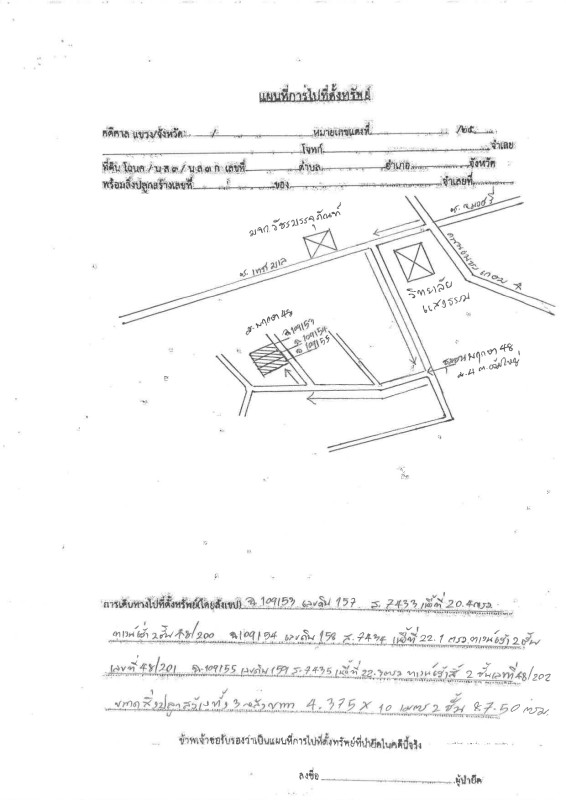 แผนที่การไปที่ตั้งทรัพย์
คดีศาล แขวง/จังหวัด / หมายเลขแดงที่ /๒๕
โจทก์ จำเลย
ที่ดิน โฉนด / น.ส ๓ / น.ส ๓ ก เลขที่ ตำบล อำเภอ จังหวัด
พร้อมสิ่งปลูกสร้างเลขที่ ของ จำเลยที่
ถ. เทศบาล
วิทยาลัย
แสงธรรม
ฉ.109153
ฉ.109154
ฉ.109155
พฤกษา 48
พฤกษา 48
การเดินทางไปที่ตั้งทรัพย์(โดยสังเขป) ฉ.109153 เลขดิน 157 ร. 7433 เนื้อที่ 20.4 ตรว.
ทาวน์เฮ้าส์ 2 ชั้น 48/200 ฉ.109154 เลขดิน 158 ร. 7434 เนื้อที่ 22.1 ตรว. ทาวน์เฮ้าส์ 2 ชั้น
เลขที่ 48/201 ฉ.109155 เลขดิน 159 ร. 7435 เนื้อที่ ตรว. ทาวน์เฮ้าส์ 2 ชั้น เลขที่ 48/202
ขนาดสิ่งปลูกสร้างทั้ง 3 หลัง ขนาด 4.375 x 10 เมตร 2 ชั้น 87.50 ตรม.
ข้าพเจ้าขอรับรองว่าเป็นแผนที่การไปที่ตั้งทรัพย์ที่นำยึดในคดีนี้จริง
ลงชื่อ ผู้นำยึด